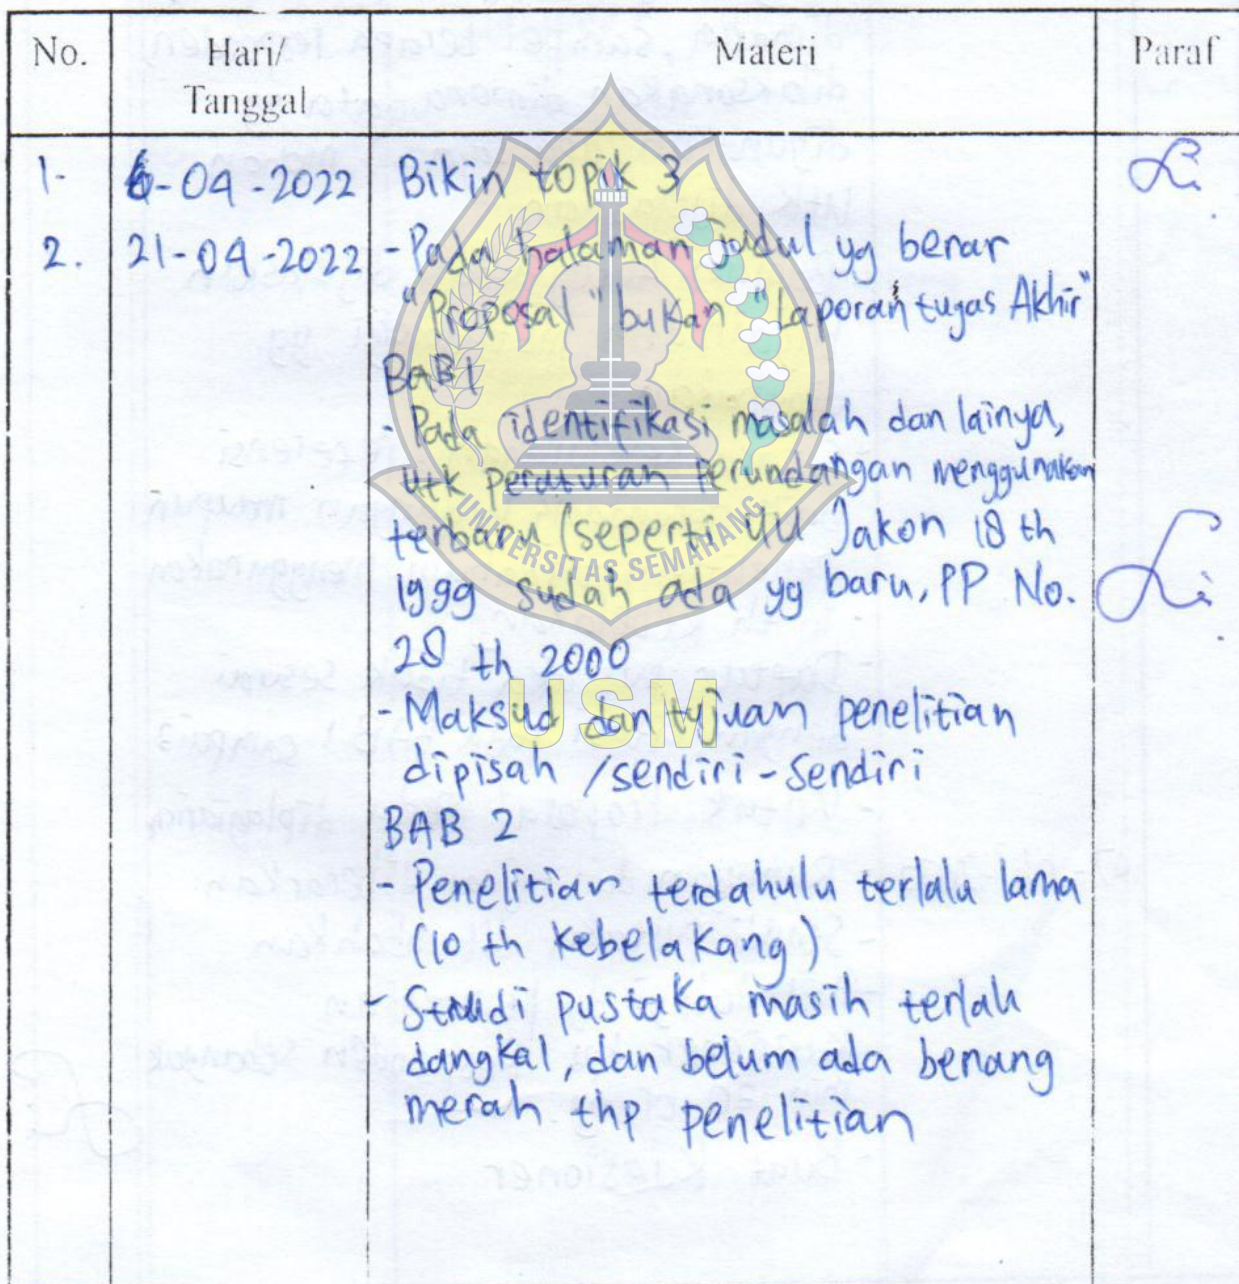 No. Hari/ Materi Paraf
Tanggal
1. 6-04-2022 Bikin topik 3
2. 21-04-2022 - Pada halaman judul yg benar
"Proposal" bukan "Laporan tugas Akhir"
BAB 1
- Pada identifikasi masalah dan lainya,
utk peraturan perundangan menggunakan
terbaru (seperti UU Jakon 18 th
1999 sudah ada yg baru, PP No.
28 th 2000
- Maksud dan tujuan penelitian
dipisah /sendiri-sendiri
BAB 2
- Penelitian terdahulu terlalu lama
(10 th kebelakang)
- Studi pustaka masih terlalu
dangkal, dan belum ada benang
merah thp penelitian
UNIVERSITAS SEMARANG
USM